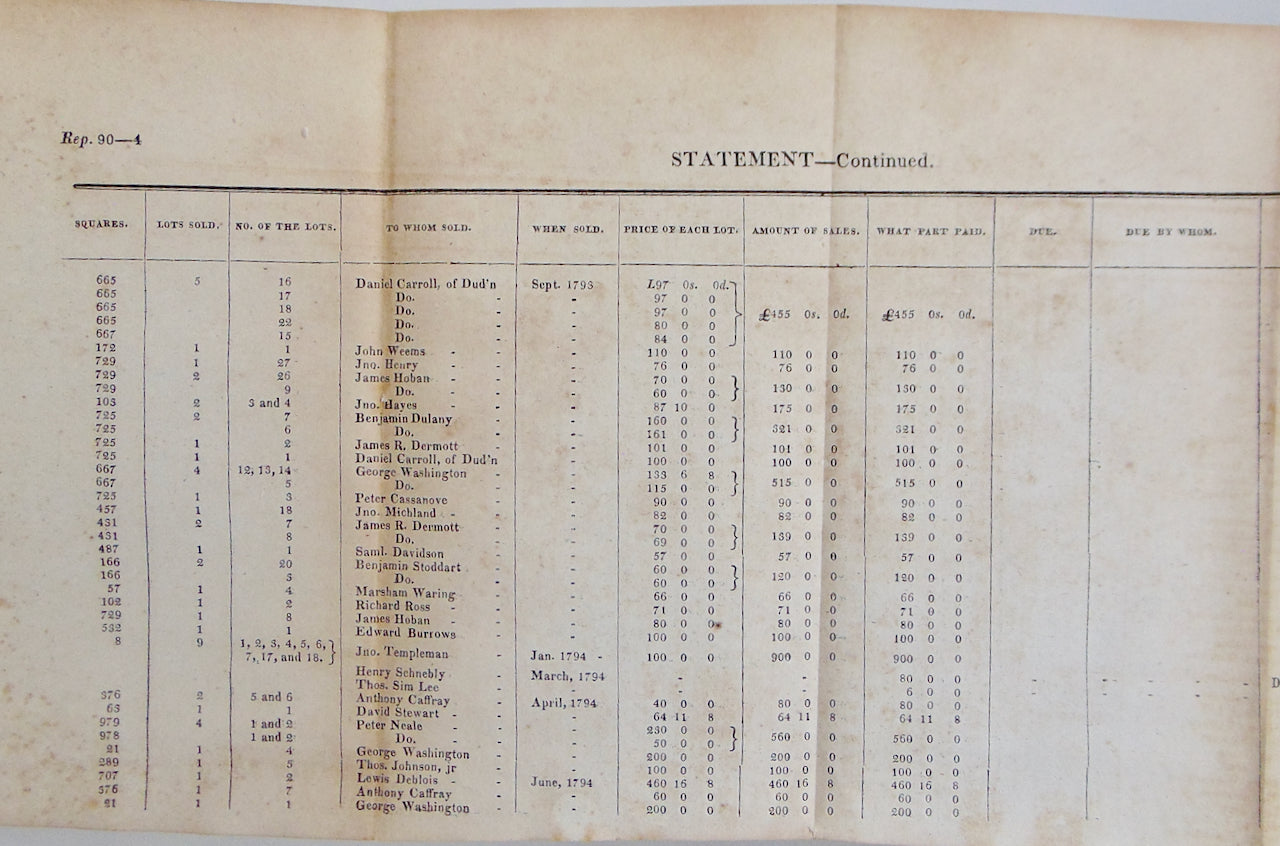 Rep. 90—4
STATEMENT—Continued.
SQUARES. LOTS SOLD. NO. OF THE LOTS. TO WHOM SOLD. WHEN SOLD. PRICE OF EACH LOT. AMOUNT OF SALES. WHAT PART PAID. DUE. DUE BY WHOM.
665 5 16 Daniel Carroll, of Dud'n Sept. 1793 L97 0s. 0d.
665 17 Do. - - 97 0 0
665 18 Do. - - 97 0 0 £455 0s. 0d. £455 0s. 0d.
665 22 Do. - - 80 0 0
667 15 Do. - - 84 0 0
172 1 1 John Weems - - - 110 0 0 110 0 0 110 0 0
729 1 27 Jno. Henry - - - 76 0 0 76 0 0 76 0 0
729 2 26 James Hoban - - - 70 0 0
729 9 Do. - - 60 0 0 130 0 0 130 0 0
103 2 3 and 4 Jno. Hayes - - - 87 10 0 175 0 0 175 0 0
725 2 7 Benjamin Dulany - - 160 0 0
725 6 Do. - - 161 0 0 321 0 0 321 0 0
725 1 2 James R. Dermott - - 101 0 0 101 0 0 101 0 0
725 1 1 Daniel Carroll, of Dud'n - 100 0 0 100 0 0 100 0 0
667 4 12, 13, 14 George Washington - - 133 6 8
667 5 Do. - - 115 0 0 515 0 0 515 0 0
725 1 3 Peter Cassanove - - 90 0 0 90 0 0 90 0 0
457 1 18 Jno. Michland - - - 82 0 0 82 0 0 82 0 0
431 2 7 James R. Dermott - - 70 0 0
431 8 Do. - - 69 0 0 139 0 0 139 0 0
487 1 1 Saml. Davidson - - 57 0 0 57 0 0 57 0 0
166 2 20 Benjamin Stoddart - - 60 0 0
166 3 Do. - - 60 0 0 120 0 0 120 0 0
57 1 4 Marsham Waring - - 66 0 0 66 0 0 66 0 0
102 1 2 Richard Ross - - - 71 0 0 71 0 0 71 0 0
729 1 8 James Hoban - - - 80 0 0 80 0 0 80 0 0
532 1 1 Edward Burrows - - 100 0 0 100 0 0 100 0 0
8 9 1, 2, 3, 4, 5, 6,
7, 17, and 18. Jno. Templeman - Jan. 1794 - 100 0 0 900 0 0 900 0 0
Henry Schnebly - March, 1794 - - 80 0 0
Thos. Sim Lee - - - - 6 0 0 - - - - - - D
376 2 5 and 6 Anthony Caffray - April, 1794 40 0 0 80 0 0 80 0 0
63 1 1 David Stewart - - - 64 11 8 64 11 8 64 11 8
979 4 1 and 2 Peter Neale - - - 230 0 0
978 1 and 2 Do. - - - 50 0 0 560 0 0 560 0 0
21 1 4 George Washington - - 200 0 0 200 0 0 200 0 0
289 1 5 Thos. Johnson, jr - - 100 0 0 100 0 0 100 0 0
707 1 2 Lewis Deblois - - June, 1794 460 16 8 460 16 8 460 16 8
376 1 7 Anthony Caffray - - 60 0 0 60 0 0 60 0 0
21 1 1 George Washington - - 200 0 0 200 0 0 200 0 0